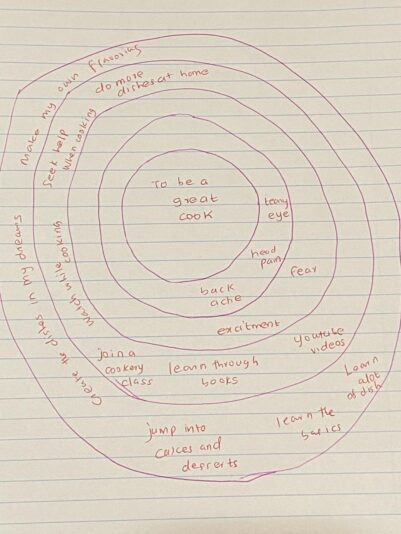 To be a
great
cook
teary
eye
head
pain
back
ache
fear
excitment
do more
dishes at home
Seek help
when cooking
watch while cooking
join a
cookery
class
learn through
books
youtube
videos
Make my own flavoring
Create the dishes in my dreams
jump into
cakes and
desserts
learn the
basics
Learn
alot
of dish